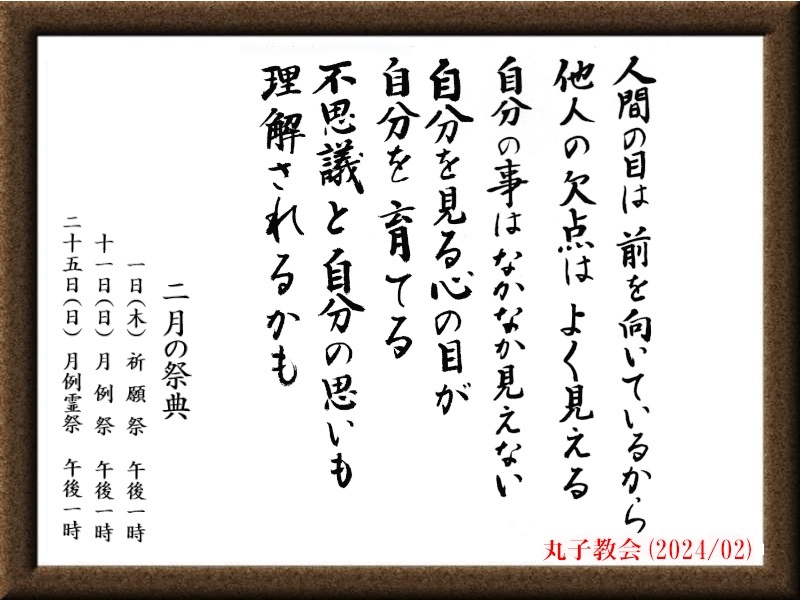 人間の目は前を向いているから
他人の欠点はよく見える
自分の事はなかなか見えない
自分を見る心の目が
自分を育てる
不思議と自分の思いも
理解されるかも
二月の祭典
一日(木) 祈願祭 午後一時
十一日(日) 月例祭 午後一時
二十五日(日) 月例霊祭 午後一時
丸子教会(2024/02)